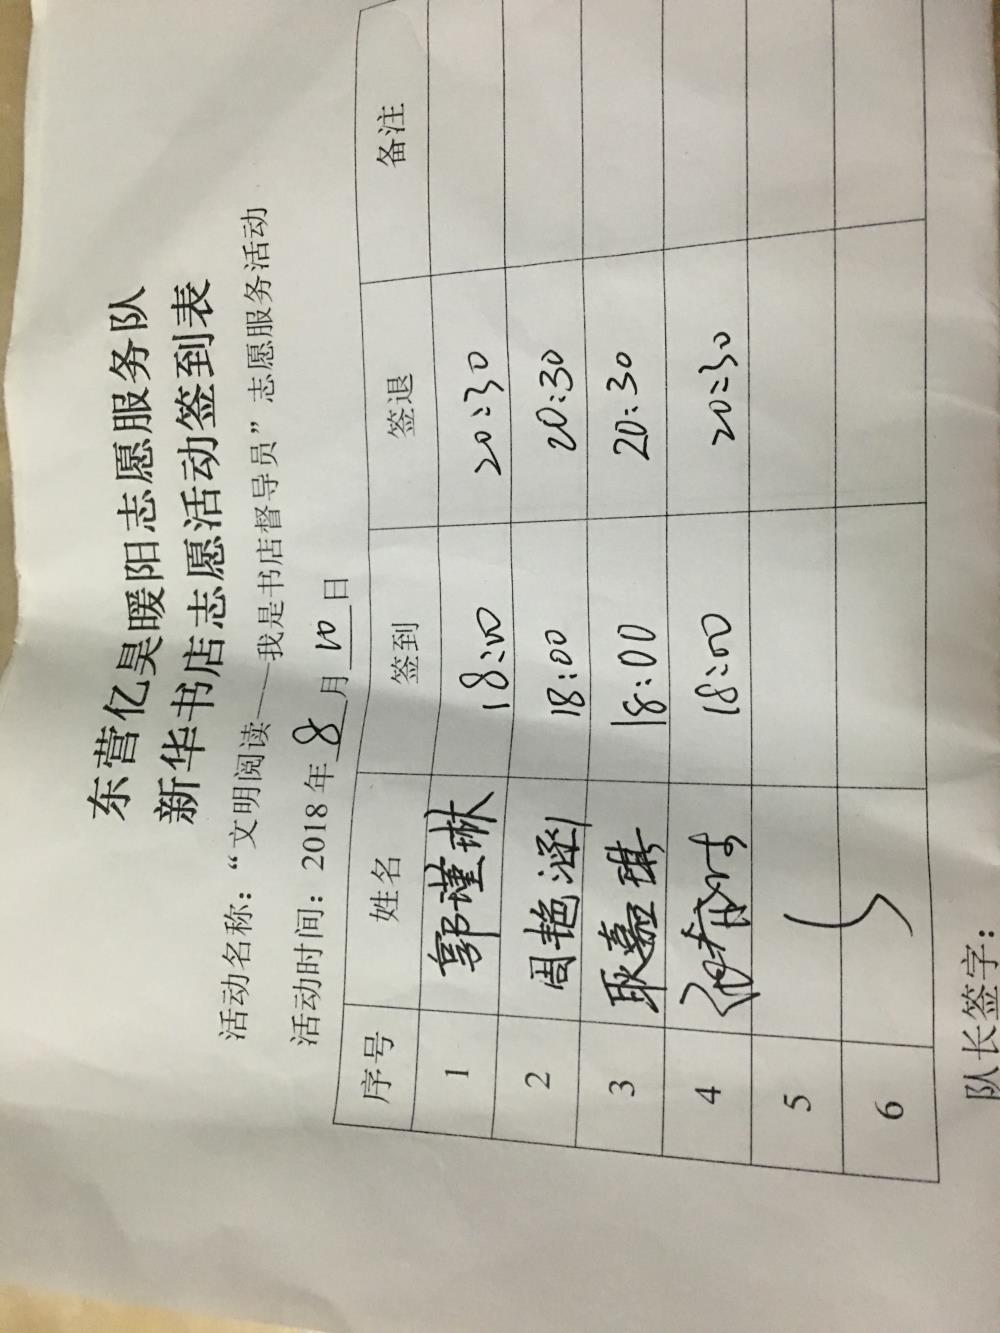 东营亿昊暖阳志愿服务队
新华书店志愿活动签到表
活动名称：“文明阅读——我是书店督导员”志愿服务活动
活动时间：2018年 8 月 10 日
序号 姓名 签到 签退 备注
1 郭瑾琳 18:00 20:30
2 周艳涵 18:00 20:30
3 耿嘉琪 18:00 20:30
4 18:00 20:30
5
6
队长签字：